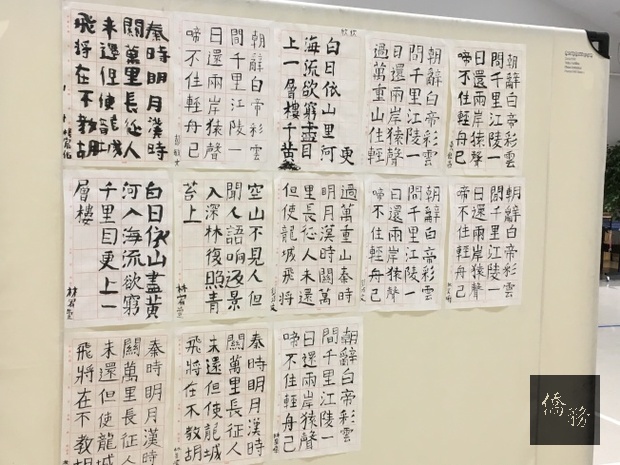 秦時明月漢時
關萬里長征人
未還但使龍城
飛將在不教胡
朝辭白帝彩雲
間千里江陵一
日還兩岸猿聲
啼不住輕舟已
更
白日依山里河
海流欲窮盡目
上一層樓千黃
朝辭白帝彩雲
間千里江陵一
日還兩岸猿聲
過萬重山住輕
朝辭白帝彩雲
間千里江陵一
日還兩岸猿聲
啼不住輕舟已
白日依山盡黃
河入海流欲窮
千里目更上一
層樓
空山不見人但
聞人語响返景
入深林復照青
苔上
過萬重山秦時
明月漢時關萬
里長征人未還
但使龍城飛將
朝辭白帝彩雲
間千里江陵一
日還兩岸猿聲
啼不住輕舟已
朝辭白帝彩雲
間千里江陵一
日還兩岸猿聲
啼不住輕舟已
秦時明月漢時
關萬里長征人
未還但使龍城
飛將在不教胡
秦時明月漢時
關萬里長征人
未還但使龍城
飛將在不教胡
朝辭白帝彩雲
間千里江陵一
日還兩岸猿聲
啼不住輕舟已
僑務